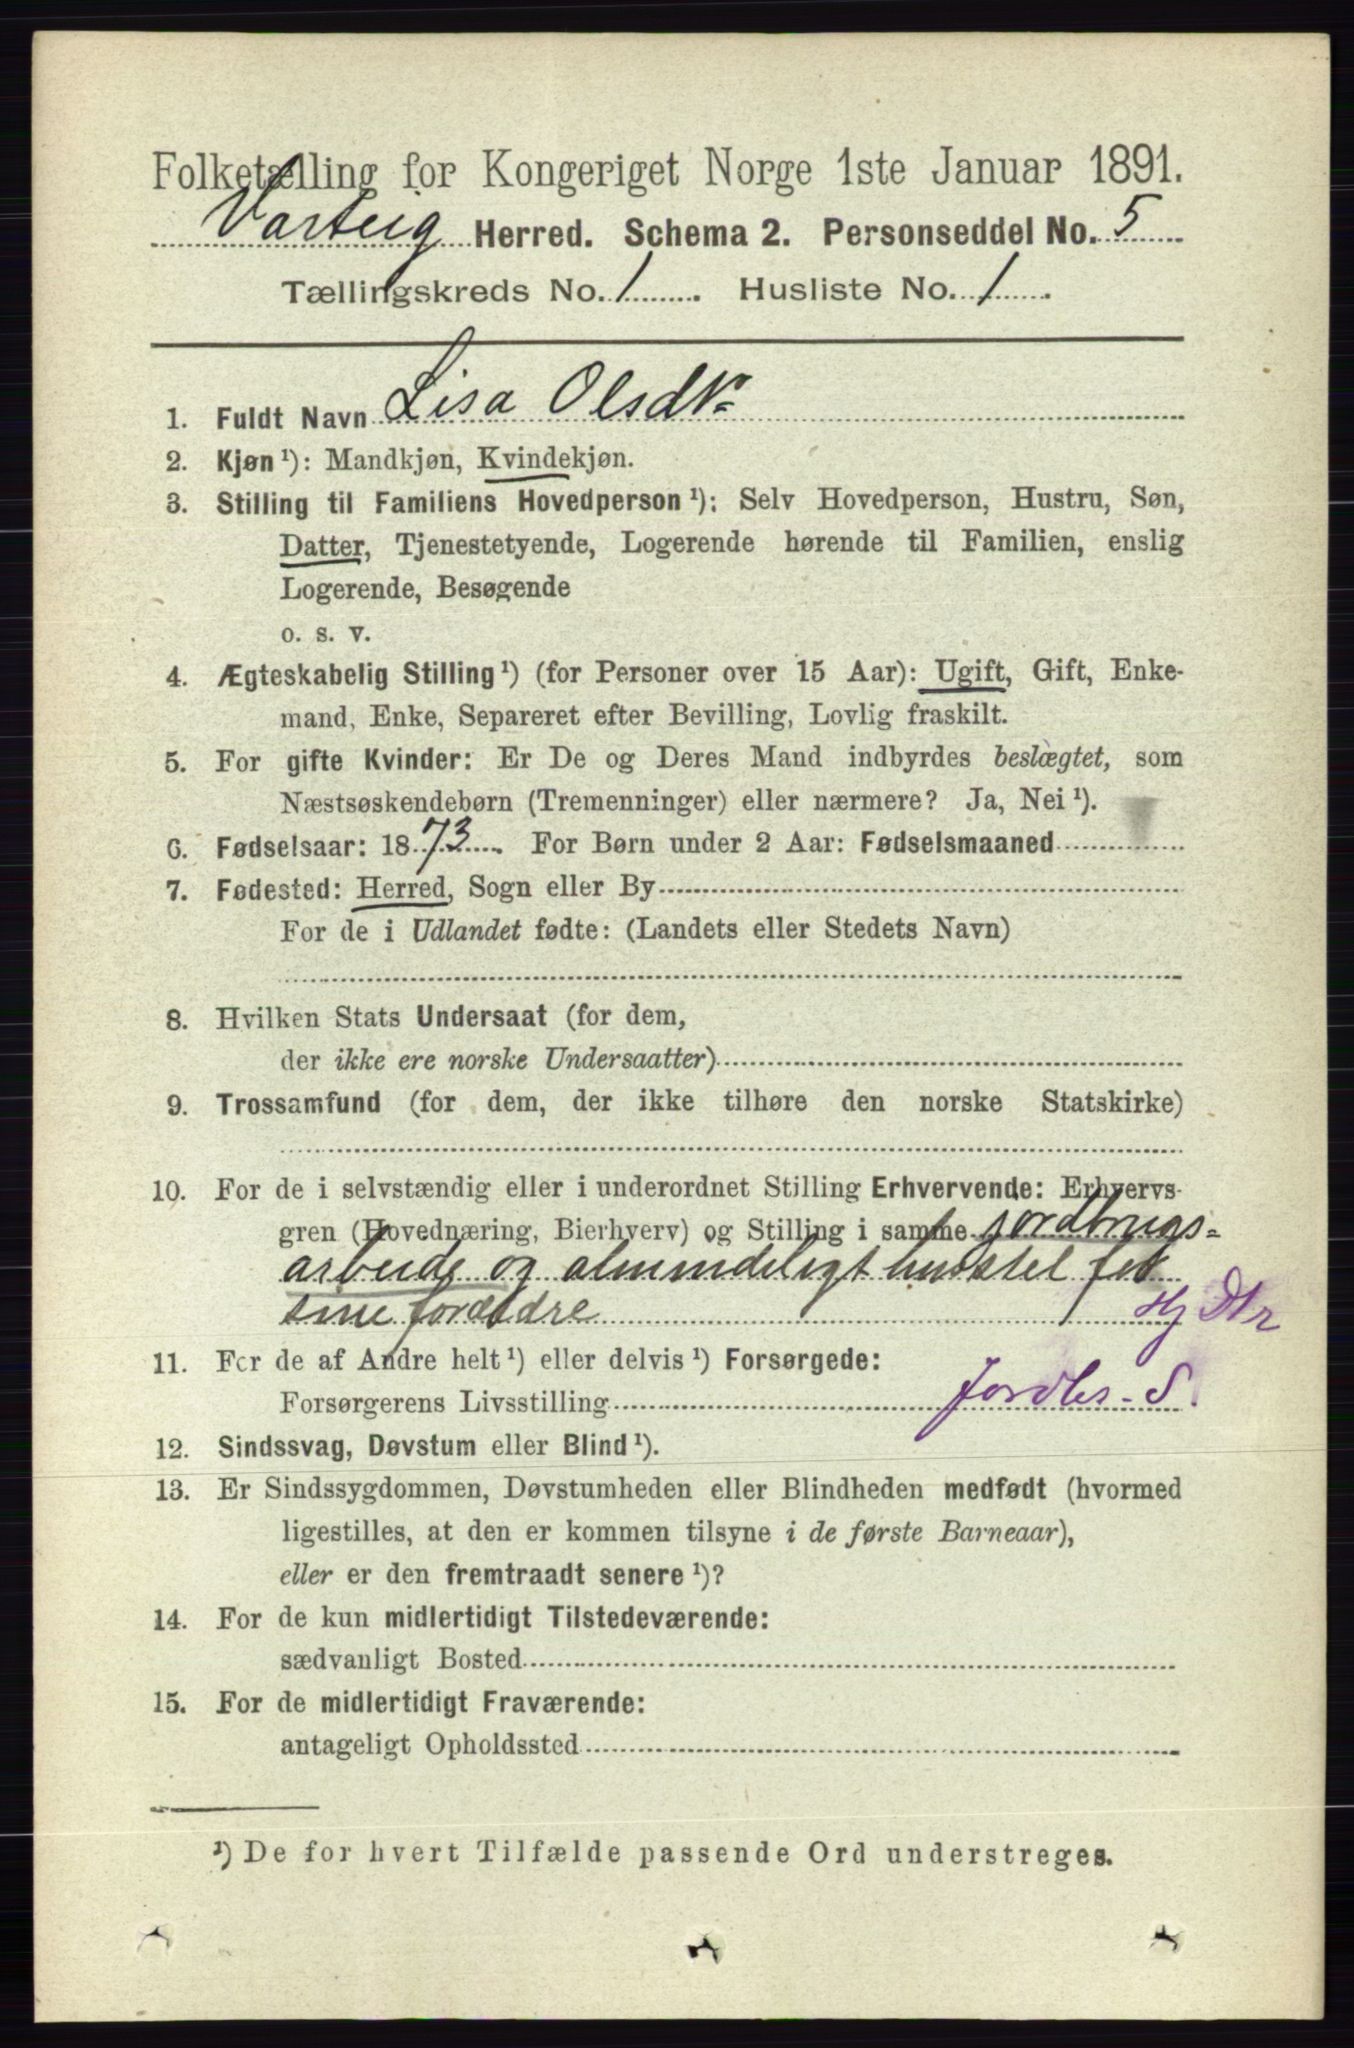 Folketælling for Kongeriget Norge 1ste Januar 1891.
Varteig Herred. Schema 2. Personseddel No. 5
Tællingskreds No. 1. Husliste No. 1.
1. Fuldt Navn Lisa Olsdtr
2. Kjøn ¹): Mandkjøn, Kvindekjøn.
3. Stilling til Familiens Hovedperson ¹): Selv Hovedperson, Hustru, Søn,
Datter, Tjenestetyende, Logerende hørende til Familien, enslig
Logerende, Besøgende
o. s. v.
4. Ægteskabelig Stilling ¹) (for Personer over 15 Aar): Ugift, Gift, Enke-
mand, Enke, Separeret efter Bevilling, Lovlig fraskilt.
5. For gifte Kvinder: Er De og Deres Mand indbyrdes beslægtet, som
Næstsøskendebørn (Tremenninger) eller nærmere? Ja, Nei ¹).
6. Fødselsaar: 1873. For Børn under 2 Aar: Fødselsmaaned
7. Fødested: Herred, Sogn eller By
For de i Udlandet fødte: (Landets eller Stedets Navn)
8. Hvilken Stats Undersaat (for dem,
der ikke ere norske Undersaatter)
9. Trossamfund (for dem, der ikke tilhøre den norske Statskirke)
10. For de i selvstændig eller i underordnet Stilling Erhvervende: Erhvervs-
gren (Hovednæring, Bierhverv) og Stilling i samme jordbrugs-
arbeide og almindeligt husstel for
sine forældre Hj Dtr
11. For de af Andre helt ¹) eller delvis ¹) Forsørgede:
Forsørgerens Livsstilling Jordbr - S.
12. Sindssvag, Døvstum eller Blind ¹).
13. Er Sindssygdommen, Døvstumheden eller Blindheden medfødt (hvormed
ligestilles, at den er kommen tilsyne i de første Barneaar),
eller er den fremtraadt senere ¹)?
14. For de kun midlertidigt Tilstedeværende:
sædvanligt Bosted
15. For de midlertidigt Fraværende:
antageligt Opholdssted
¹) De for hvert Tilfælde passende Ord understreges.